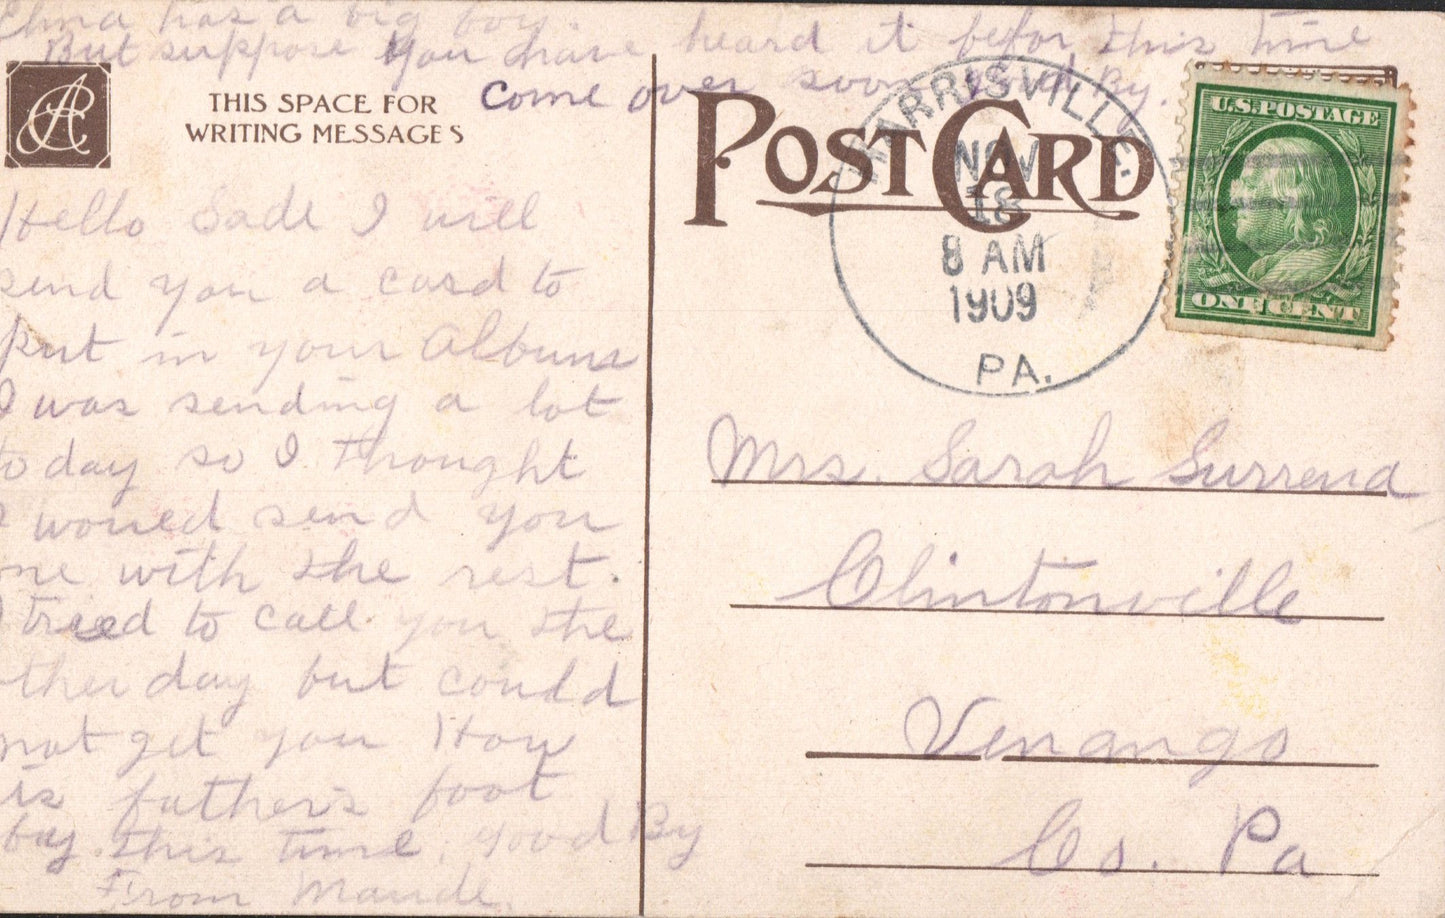 Elma has a big boy.
But suppose you have heard it befor this time
Come over soon Good By.
THIS SPACE FOR
WRITING MESSAGES
Hello Sade I will
send you a card to
put in your Albums
I was sending a lot
to day so I thought
I woued send you
one with the rest.
I treed to call you the
other day but could
not get you How
is father's foot
by this time. Good By
From Maude.
POST CARD
HARRISVILLE
NOV
18
8 AM
1909
PA.
U.S. POSTAGE
ONE CENT
Mrs. Sarah Surrena
Clintonville
Venango
Co. Pa